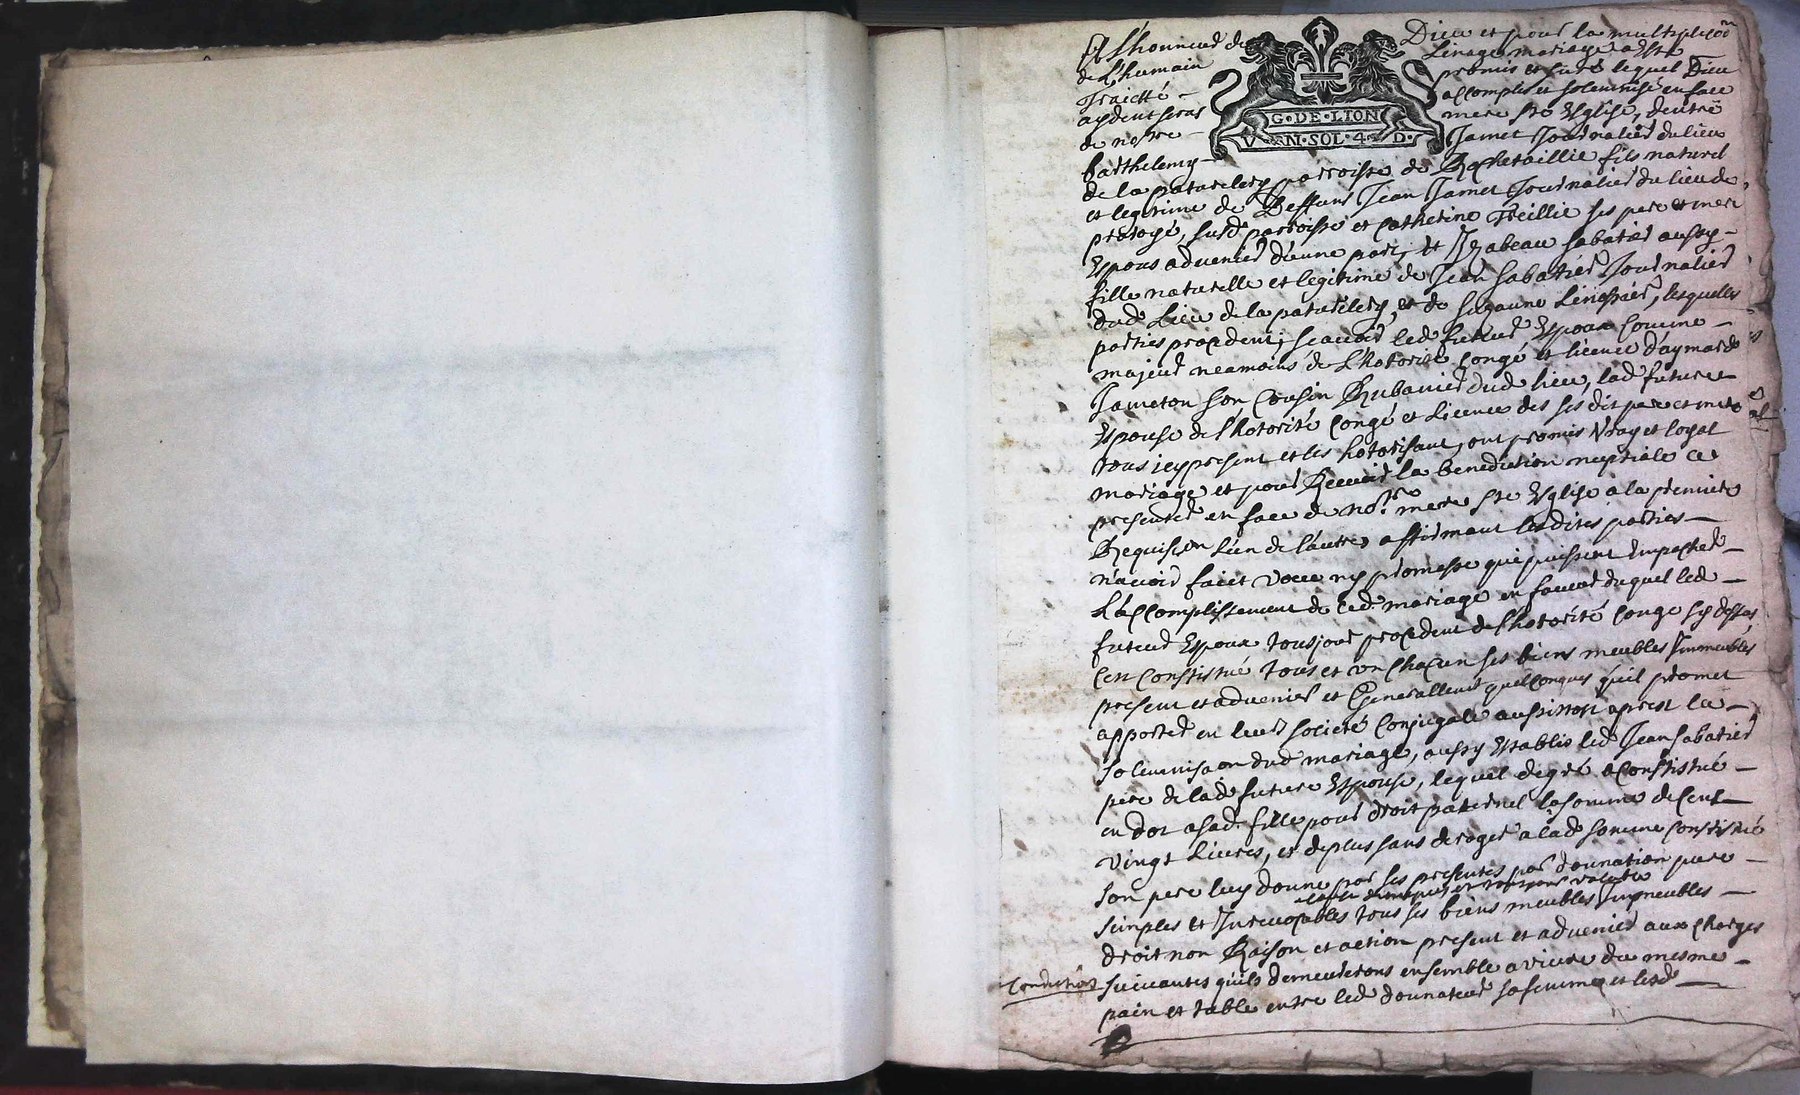 A L'honneur de Dieu et pour la multipli[cati]on
de L'humain Linage mariage a este
Traicté – promis et sur lequel Dieu
aydent seras accomplis et solemnisé en face
de nostre – mere Ste Esglise, dentre
G·DE·LION
V·N·SOL·4·D·
barthelemy – Jamet Journalier du lieu
de la paturelery parroisse de Rochetaillie fils naturel
et legitime de deffunt Jean Jamet Journalier du lieu de
, susd. parroisse et Catherine Freillie ses pere et mere
Espoux advenir d'eune part, et Izabeau sabatier aussy –
fille naturelle et legitime de Jean sabatier Journalier
dud. Lieu de la paturelery, et de suzanne, lesquelles
parties procedent; scavoir led. futeur Espoux comme –
majeur neamoins de L'hotorité congé et licence d'aymard
Jameton son Cousin Rubanier dud. lieu, lad. future
Espouse de l'hotorité Congé et Licence des ses dit pere et mere
tous icy present et les hotorisant, ont promis vray et loyal
mariage et pour Recevoir la benediction nuptiale ce
presenter en face de nore. mere ste Esglise a la premiere
Requision L'un de l'autre affirmant lesdites parties –
n'avoir faict voeu ny promesse qui puissent Empescher –
L'accomplissement de ced. mariage en faveur duquel led. –
futeur Espoux tousjour procedent de l'hotorité conge sy dessus
cest Constistué tous et un chacun ses biens meubles Immeubles
present et advenir et Generallement quelconques qu'il promet
apporter en leur societé Conjugale aussittost aprest la –
solemnisaon dud. mariage, aussy Establis led. Jean sabatier
pere de lad. future Espouse, lequel de gré a Constistué –
en dot asad. fille pour droit paternel la somme de Cent
vingt Livres, et de plus sans deroger a lad. somme constistué
son pere luy donne par ses presentes par donnation pure –
simples et Inrevocables tous ses biens meubles Immeubles –
droit non Raison et action present et advenir aux charges
Conditions suivantes qu'ils demeurerons ensemble a vivre du mesme –
pain et table entre led. donnateur sa femme et lesd. –